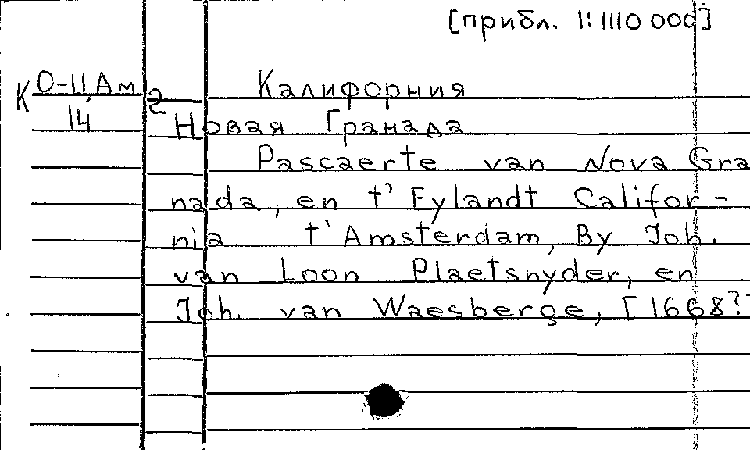 [прибл. 1:1110 000]
К О-II,Ам 2 Калифорния
14 Новая Гранада
Pascaerte van Nova Gra
nada, en t' Eylandt Califor-
nia t'Amsterdam, By Joh.
van Loon Plaetsnyder, en
Joh. van Waesberge, [1668?